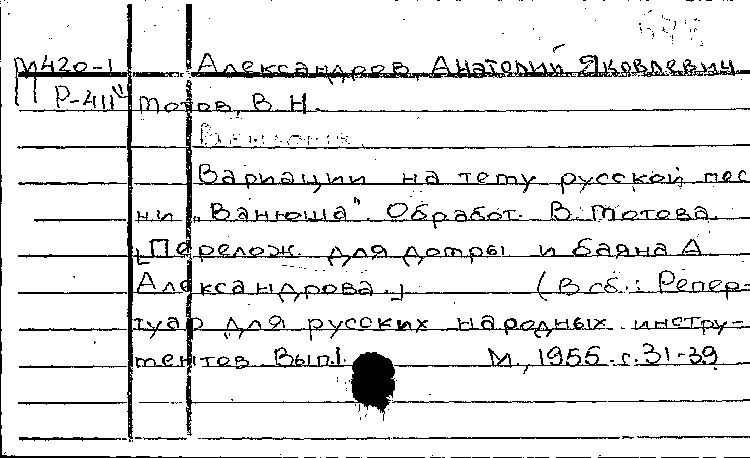 М420-1 Александров, Анатолий Яковлевич
Р-411 Мотов, В. Н.
Вариации на тему русской пес
ни "Ванюша". Обработ. В. Мотова
[Перелож. для домры и баяна А
Александрова.] (В сб.: Репер-
туар для русских народных инстру-
ментов Вып.1. М., 1955. с. 31-39